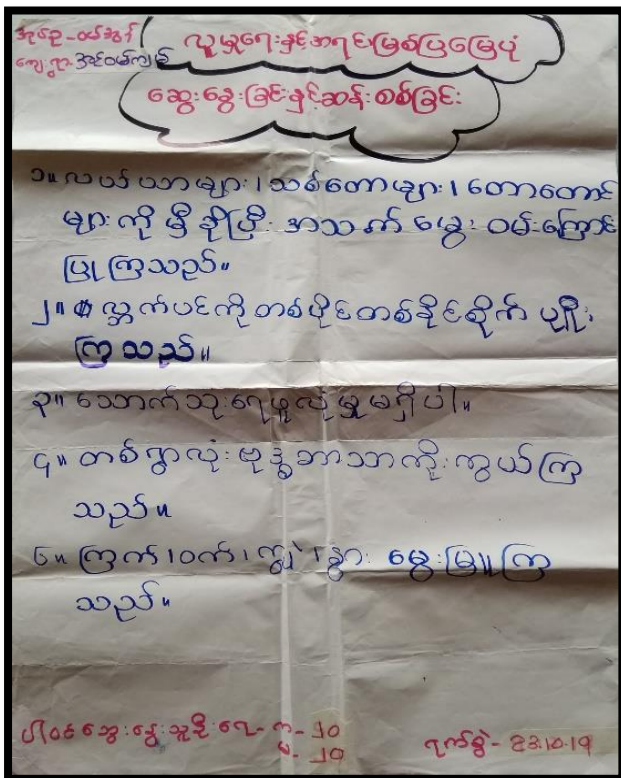 အုပ်စု-ထမ်ဆန်
ကျေးရွာ-အင်ဝမ်ကျမ်
လူမှုရေးနှင့်အရင်းမြစ်ပြမြေပုံ
ဆွေးနွေးခြင်းနှင့်ဆန်းစစ်ခြင်း
၁။ လယ်ယာများ၊ သစ်တောများ၊ တောတောင်
များကို မှီခိုပြီး အသက်မွေးဝမ်းကြောင်း
ပြုကြသည်။
၂။ လ္ဘက်ပင်ကို တစ်ပိုင်တစ်နိုင်စိုက်ပျိုး
ကြသည်။
၃။ သောက်သုံးရေဖူလုံမှုမရှိပါ။
၄။ တစ်ရွာလုံးဗုဒ္ဓဘာသာကိုးကွယ်ကြ
သည်။
၅။ ကြက်၊ ဝက်၊ ကျွဲ၊ နွား မွေးမြူကြ
သည်။
ပါဝင်ဆွေးနွေးသူဦးရေ- ကျ - ၂၀
မ - ၂၀
ရက်စွဲ- 23.10.19